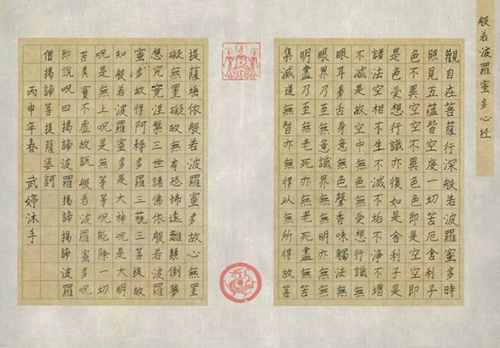 般若波羅蜜多心经
觀自在菩薩行深般若波羅蜜多時
照見五蘊皆空度一切苦厄舍利子
色不異空空不異色色即是空空即
是色受想行識亦復如是舍利子是
諸法空相不生不滅不垢不淨不增
不減是故空中無色無受想行識無
眼耳鼻舌身意無色聲香味觸法無
眼界乃至無意識界無無明亦無無
明盡乃至無老死亦無老死盡無苦
集滅道無智亦無得以無所得故菩
提薩埵依般若波羅蜜多故心無罣
礙無罣礙故無有恐怖遠離顛倒夢
想究竟涅槃三世諸佛依般若波羅
蜜多故得阿耨多羅三藐三菩提故
知般若波羅蜜多是大神呪是大明
呪是無上呪是無等等呪能除一切
苦真實不虛故說般若波羅蜜多呪
即說呪曰揭諦揭諦波羅揭諦波羅
僧揭諦菩提薩婆訶
丙申年春 武婷沐手